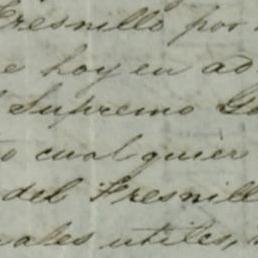 Fresnillo por
e hoy en ad
Supremo Go
o cualquier
del Fresnill
nales utiles,